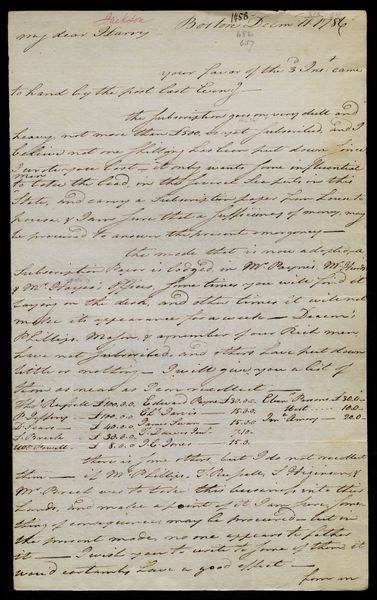 Jackson
1658
682
657
Boston Decm 11 1786
my dear Harry
your favor of the 3 Inst came
to hand by the post last Evening
the subscription goes on very dull and
heavy, not more than £500 as yet subscribed, and I
believe not one shilling has been put down since
I wrote you last — it only wants some influential
men
to take the lead in the several Seaports in this
State, and carry a Subscription paper from house to
house, & I am sure that a sufficiency of money may
be procured to answer the present emergency —
the mode that is now adopted, a
Subscription Paper is lodged in Mr Payne's, Mr
& Mr Offices, some times you will find it
laying on the desk, and other times it will not
make its appearance for a week — Deacon
Phillips, Mason, & a number of our Rich men
have not subscribed, and others have put down
little or nothing — I will give you a list of
them as near as I can recollect —
Thos Russell £100.0.0 Edward Payne £30.0.0 Eben Parsons £30.0.
P. Jeffery — £100.0.0 Cl Davis — 15.00 West .... 10.0.
D. Sears — £40.0.0 James Swan — 15.00 Jona Amory — 20.0.
S. Breck £30.0.0
8.0.0 J C Jones — 15.0.
there is some others but I do not recollect
them — if Mr Phillips, T. Russell, S. Higginson &
Mr Breck was to take this business into their
hands, and make a point of it I am sure some
thing of consequence may be procured — but in
the present mode no one appears to father
it — I wish you to write to some of them it
would certainly have a good effect —
from an